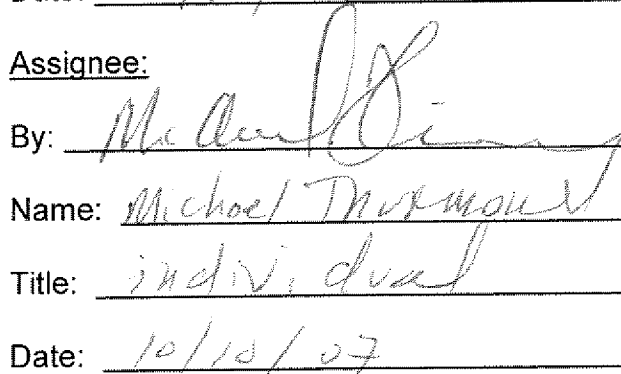 Assignee:
By:
Name: Michael Thurmond
Title: individual
Date: 10/10/07